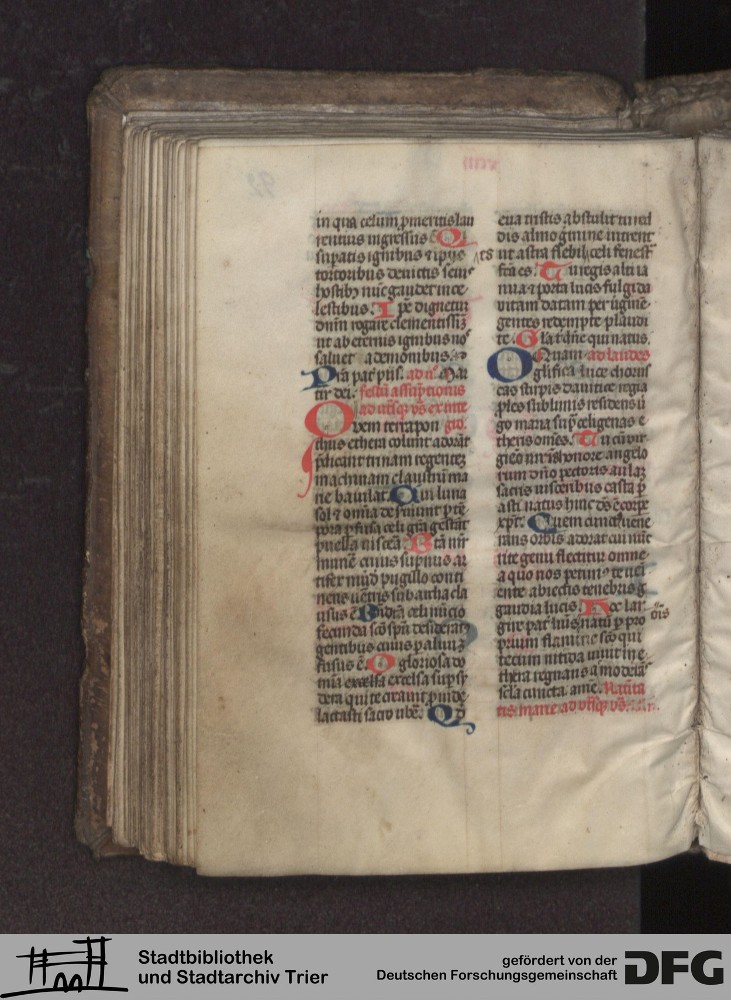 in qua celum pmeritis lau
rentius ingressus ē Q i
supatis ignibus & ipsis
tortoribus deuictis sem
hostibz nūc gaudet in ce
lestibus. I pe dignetur
dnm rogare clementissiū
ut ab eternis ignibus nos
saluet a demonibus.
Pra pat pijs. ad n
tir dei. festū assūptionis
ad utsqz vs exinte
Q vem terra pon gio.
thus ethera colunt adorāt
pdicant trinam regentez
machinam claustrū ma
rie baiulat. Q ui luna
sol & omia deseruiunt p tē
pora pfusa celi grā gestāt
puelle uiscera. B tā mr
munere cuius supnus ar
tifex mūd pugillo conti
nens uētris sub archa cla
usus ē B eata celi nūcio
fecunda sco spū desideratz
gentibus cuius p aluuz
fusus ē. O gloriosa do
mina excelsa supra sy
dera qui te creauit p uide
lactasti sacro ubē. Q d
eua tristis abstulit tu red
dis almo gmine intrent
ut astra flebiles celi fenest
fca es. T u regis alti ia
nua & porta lucis fulgida
uitam datam per ugine
gentes redempte plaudi
te. G la t dne qui natus.
O Quam ad laudes
glifica luce chorus
cas stirpis dauitice regia
ples sublimis residens ū
go maria sup celigenas e
theris omēs. T u cū vir
gieo mris honore angelo
rum dno pectoris aulaz
sacris uisceribus casta p
asti natus hinc ds ē corpe
xpc. Q uem cuncti uene
rans orbis adorat cui nūc
rite genu flectitur omne
a quo nos petim te ueī
ente abiectis tenebris g
gaudia lucis. H oc lar
gire pat luis p pro ois
prium flamine sco qui
tecum nitida uiuit in e
thera regnans a moderās
scla cuncta. amē. Natiuita
tis marie ad utsqz vs.
Stadtbibliothek
und Stadtarchiv Trier
gefördert von der
Deutschen Forschungsgemeinschaft
DFG